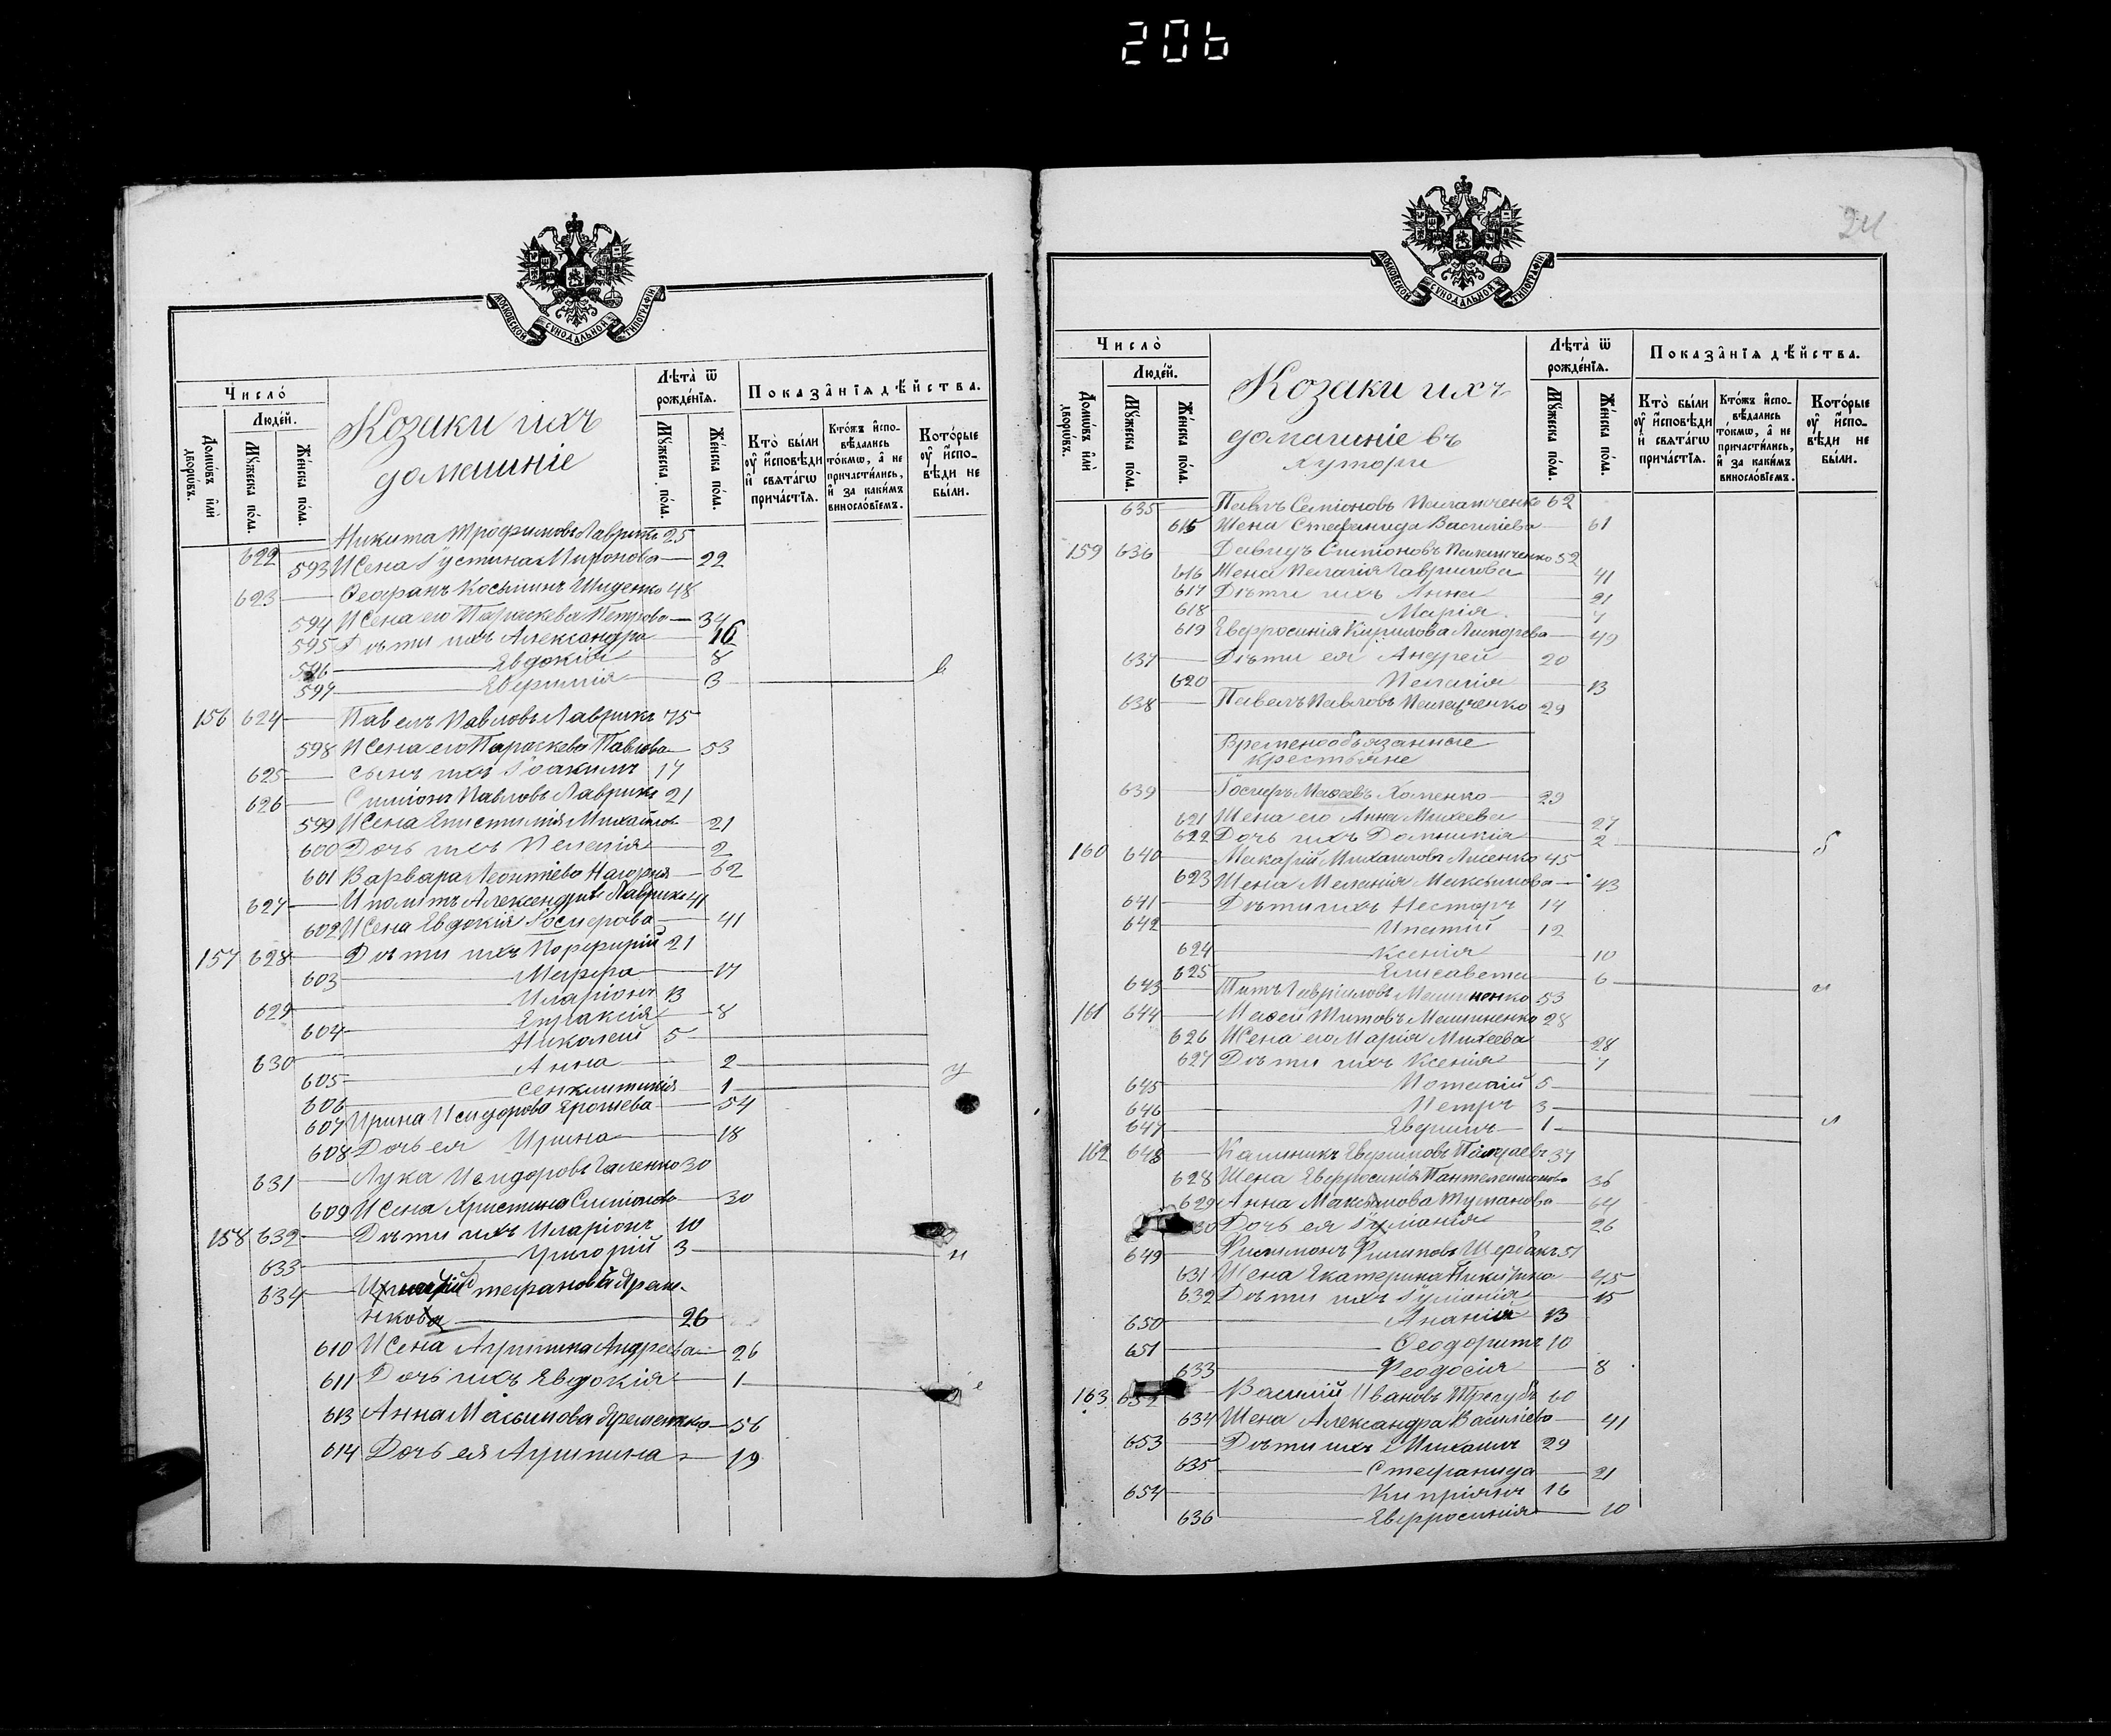 206
МОСКОВСКОЙ СУНОДАЛЬНОЙ ТИПОГРАФІИ
Число̀
Людéй.
Домѡ́въ и҆лѝ дворѡ́въ.
Мꙋ́жеска по́ла.
Же́нска по́ла.
Козаки ихъ
домашніе
Лѣта̀ ѿ рожде́нїѧ.
Мꙋ́жеска по́ла.
Же́нска по́ла.
Показа̂нїѧ дѣ́йства.
Кто̀ бы́ли ᲂу҆ и҆́сповѣди и҆ свѧта́гѡ прича́стїѧ.
Кто́жъ и҆спо-вѣ́дались то́кмѡ, а҆ не причасти́лись, и҆ за каки́мъ винослови́емъ.
Кото́рые ᲂу҆ и҆спо-вѣди не бы́ли.
622 Никита Трофимовъ Лаврикъ 25
593 Жена Іустина Миронова 22
623 Феофанъ Косьминъ 48
594 Жена его Параскева Петрова 34
595 Дѣти ихъ Александра 10
596 Евдокія 8
597 Евфимія 3
156 624 Павелъ Павловъ Лаврикъ 75
598 Жена его Параскева Павлова 53
625 сынъ ихъ Іоакимъ 17
626 Симіонъ Павловъ Лаврикъ 21
599 Жена Епистимія Михайлов 21
600 Дочь ихъ Пелагія 2
601 Варвара Леонтіева Нагорня 62
627 Иполитъ Александровъ Лаврикъ 41
602 Жена Евдокія Іосифова 41
157 628 Дѣти ихъ Порфирій 21
603 Марфа 17
629 Иларіонъ 13
604 Евпраксія 8
630 Николай 5
605 Анна 2
606 Сенклитикія 1
607 Ирина Исидорова 54
608 Дочь ея Ирина 18
631 Лука Исидоровъ Галенко 30
609 Жена Христина Симіонова 30
158 632 Дѣти ихъ Иларіонъ 10
633 Григорій 3
634 Стефановъ
26
610 Жена Агрипина Андреева 26
611 Дочь ихъ Евдокія 1
613 Анна Максимова 56
614 Дочь ея Агрипина 19
24
МОСКОВСКОЙ СУНОДАЛЬНОЙ ТИПОГРАФІИ
Число̀
Людéй.
Домѡ́въ и҆лѝ дворѡ́въ.
Мꙋ́жеска по́ла.
Же́нска по́ла.
Козаки ихъ
домашніе въ
хуторѣ
Лѣта̀ ѿ рожде́нїѧ.
Мꙋ́жеска по́ла.
Же́нска по́ла.
Показа̂нїѧ дѣ́йства.
Кто̀ бы́ли ᲂу҆ и҆́сповѣди и҆ свѧта́гѡ прича́стїѧ.
Кто́жъ и҆спо-вѣ́дались то́кмѡ, а҆ не причасти́лись, и҆ за каки́мъ винослови́емъ.
Кото́рые ᲂу҆ и҆спо-вѣди не бы́ли.
635 Павлъ Семіоновъ 62
615 Жена Стефанида Василіева 61
159 636 Давидъ Симіоновъ 52
616 Жена Пелагія Гаврилова 41
617 Дѣти ихъ Анна 21
618 Марія 7
619 Евфросинія Кирилова 49
637 Дѣти ея Андрей 20
620 Пелагія 13
638 Павелъ Павловъ 29
Временообязанные
крестьяне
639 Іосифъ Хоменко 29
621 Жена его Анна Михеева 27
622 Дочь ихъ Домникія 2
160 640 Макарій Михаиловъ Лисенко 45
623 Жена Меланія Максимова 43
641 Дѣти ихъ Несторъ 14
642 Ипатій 12
624 Ксенія 10
625 Елисавета 6
643 Титъ Гавріиловъ 53
161 644 Титовъ 28
626 Жена его Марія Михеева 28
627 Дѣти ихъ Ксенія 7
645 Потапій 5
646 Петръ 3
647 Евфимъ 1
162 648 Калиникъ Евфимовъ 37
628 Жена Евфросинія Пантелеимонова 36
629 Анна Максимова Туманова 64
630 Дочь ея Іуліанія 26
649 Филимонъ Филиповъ Щербакъ 51
631 Жена Екатерина Никитина 45
632 Дѣти ихъ Іуліанія 15
650 Ананій 13
651 Феодоритъ 10
633 Феодосія 8
163 652 Василій Ивановъ Трегубъ 60
634 Жена Александра Василіева 41
653 Дѣти ихъ Михаилъ 29
635 Стефанида 21
654 Кипріянъ 16
636 Евфросинія 10